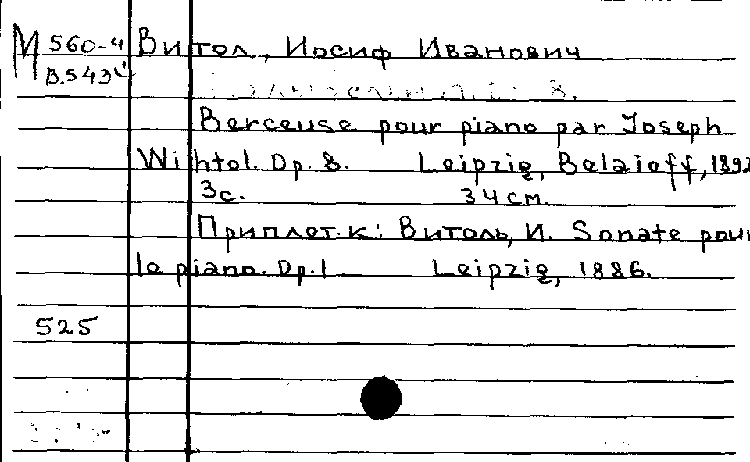 М 560-4 Витол, Иосиф Иванович
В.543
Berceuse pour piano par Joseph
Wihtol. Op. 8. Leipzig, Belaieff, 1892
3с. 34 см.
Приплет. к: Витоль, И. Sonate pour
le piano. Op. 1 Leipzig, 1886.
525